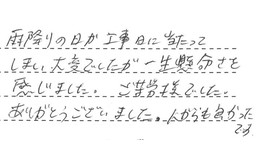 雨降りの日が工事日に当たって
しまい大変でしたが一生懸命さを
感じました。ご苦労様でした
ありがとうございました。人がらも良かった
です